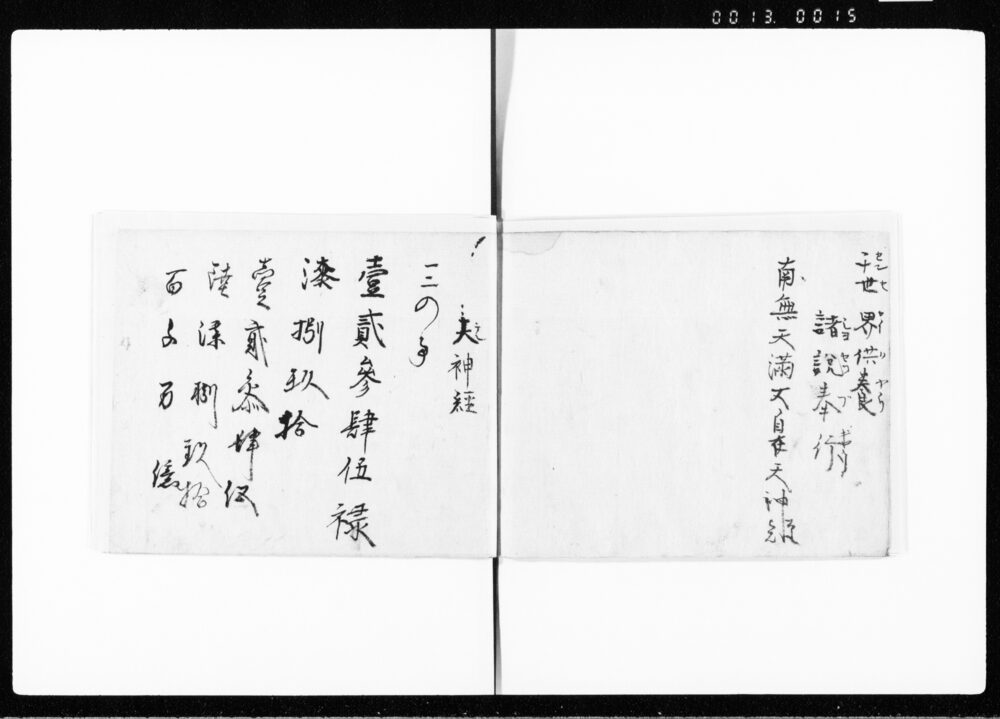 0013.0015
千世界供養
諸説奉行
南無天満大自在天神
天神経
一二の事
壹貳參肆伍禄
漆捌玖拾
壹貳參肆伍
陸漆捌玖拾
百千万億